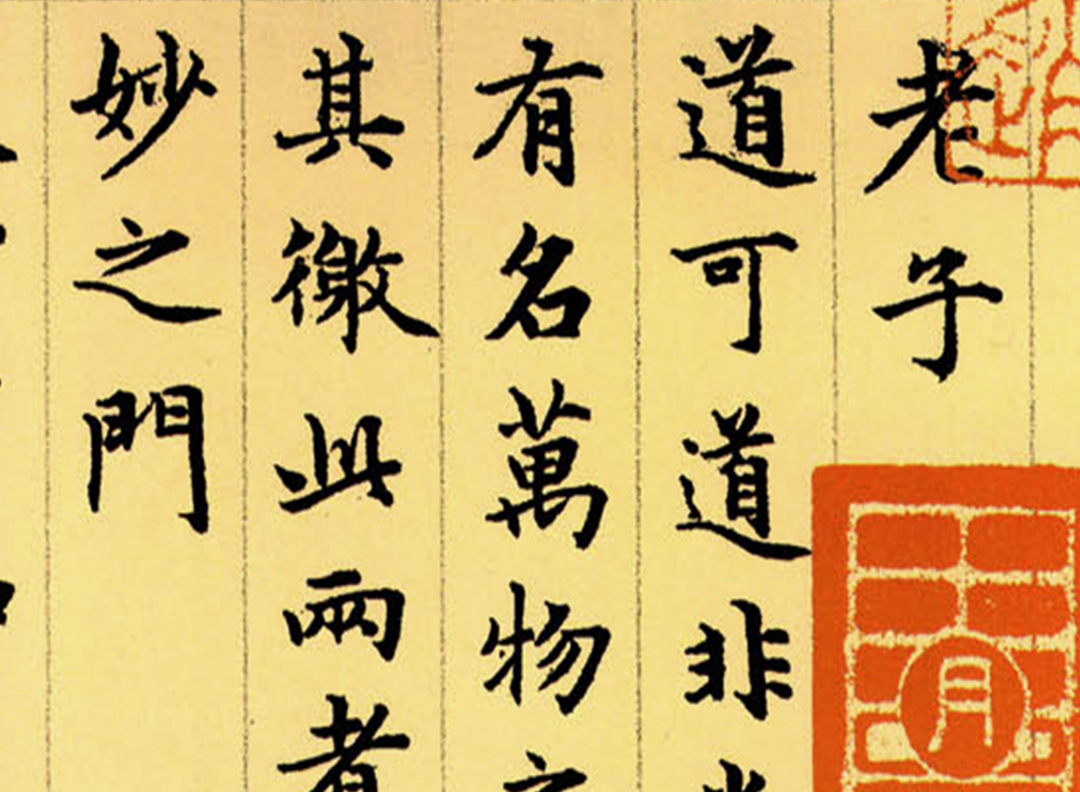 老子
道可道非
有名萬物
其徼此兩者
妙之門
月